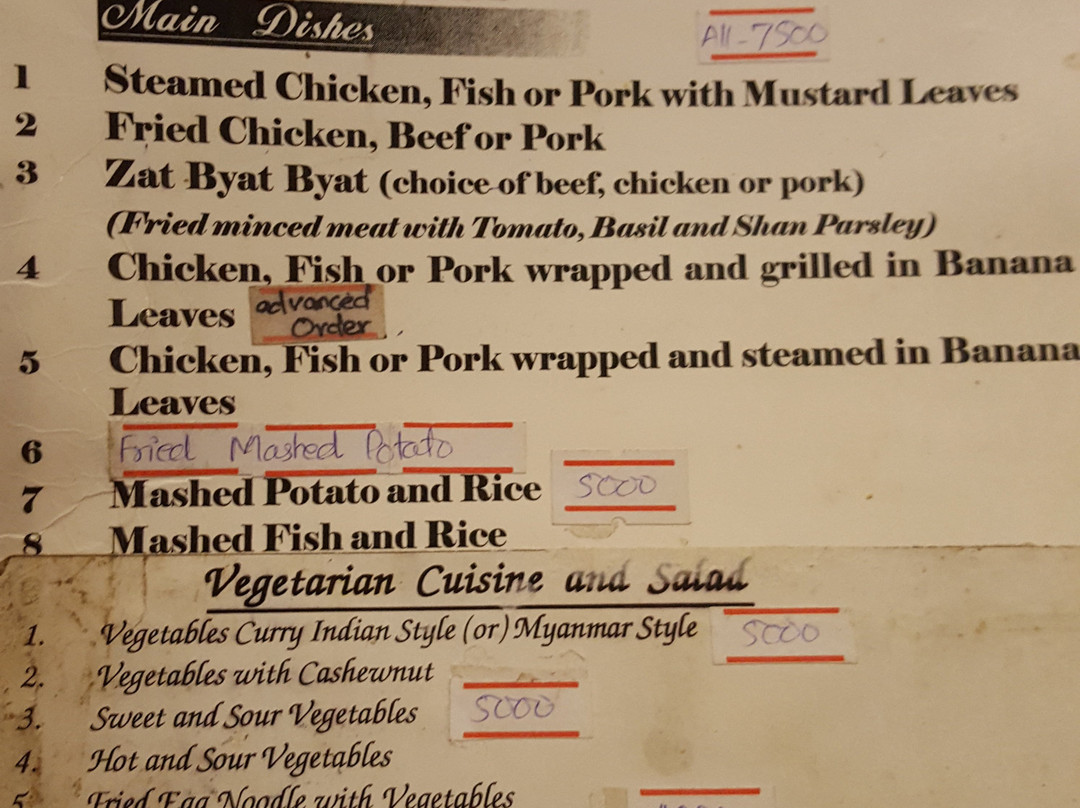 Main Dishes All - 7500
1 Steamed Chicken, Fish or Pork with Mustard Leaves
2 Fried Chicken, Beef or Pork
3 Zat Byat Byat (choice of beef, chicken or pork)
(Fried minced meat with Tomato, Basil and Shan Parsley)
4 Chicken, Fish or Pork wrapped and grilled in Banana
Leaves advanced
Order
5 Chicken, Fish or Pork wrapped and steamed in Banana
Leaves
6 Fried Mashed Potato
7 Mashed Potato and Rice 5000
8 Mashed Fish and Rice
Vegetarian Cuisine and Salad
1. Vegetables Curry Indian Style (or) Myanmar Style 5000
2. Vegetables with Cashewnut
3. Sweet and Sour Vegetables 5000
4. Hot and Sour Vegetables
5. Fried Egg Noodle with Vegetables